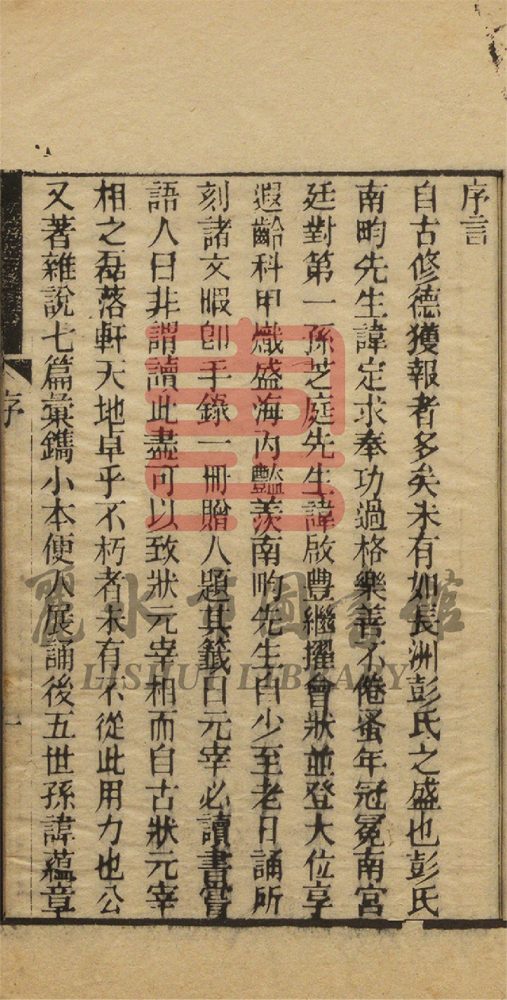 序言
自古修德獲報者多矣未有如長洲彭氏之盛也彭氏
南畇先生諱定求奉功過格樂善不倦蚤年冠冕南宮
廷對第一孫芝庭先生諱啟豐繼擢會狀並登大位享
遐齡科甲熾盛海內豔羨南畇先生自少至老日誦所
刻諸文暇卽手錄一冊贈人題其籤曰元宰必讀書嘗
語人曰非謂讀此盡可以致狀元宰相而自古狀元宰
相之磊落軒天地卓乎不朽者未有不從此用力也公
又著雜說七篇彙鐫小本便人展誦後五世孫諱蘊章
序
一
麗水市圖書館
LISHUI LIBRARY